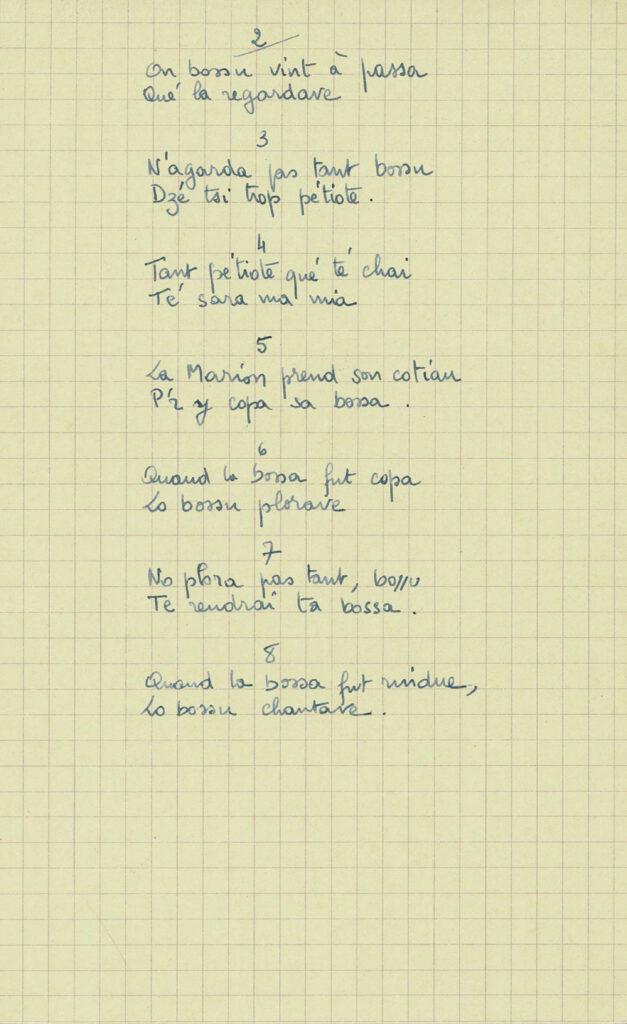 2
On bossu vint à passa
Qué la regardave
3
N'agarda pas tant bossu
Dzé tsi trop pétiote.
4
Tant pétiote qué té chai
Té sara ma mia
5
La Marion prend son cotiau
P'r y copa sa bossa.
6
Quand la bossa fut copa
Lo bossu plorave
7
No plora pas tant, bossu
Te rendraî ta bossa.
8
Quand la bossa fut rindue,
Lo bossu chantave.